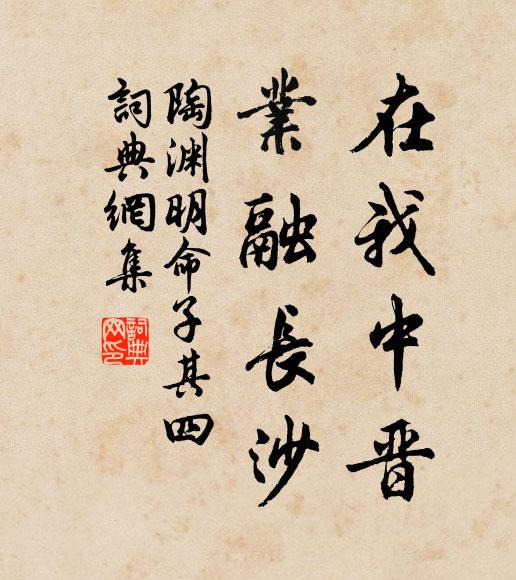 在我中晋
業融長沙
陶渊明命子其四
詞典網集
詞典網印